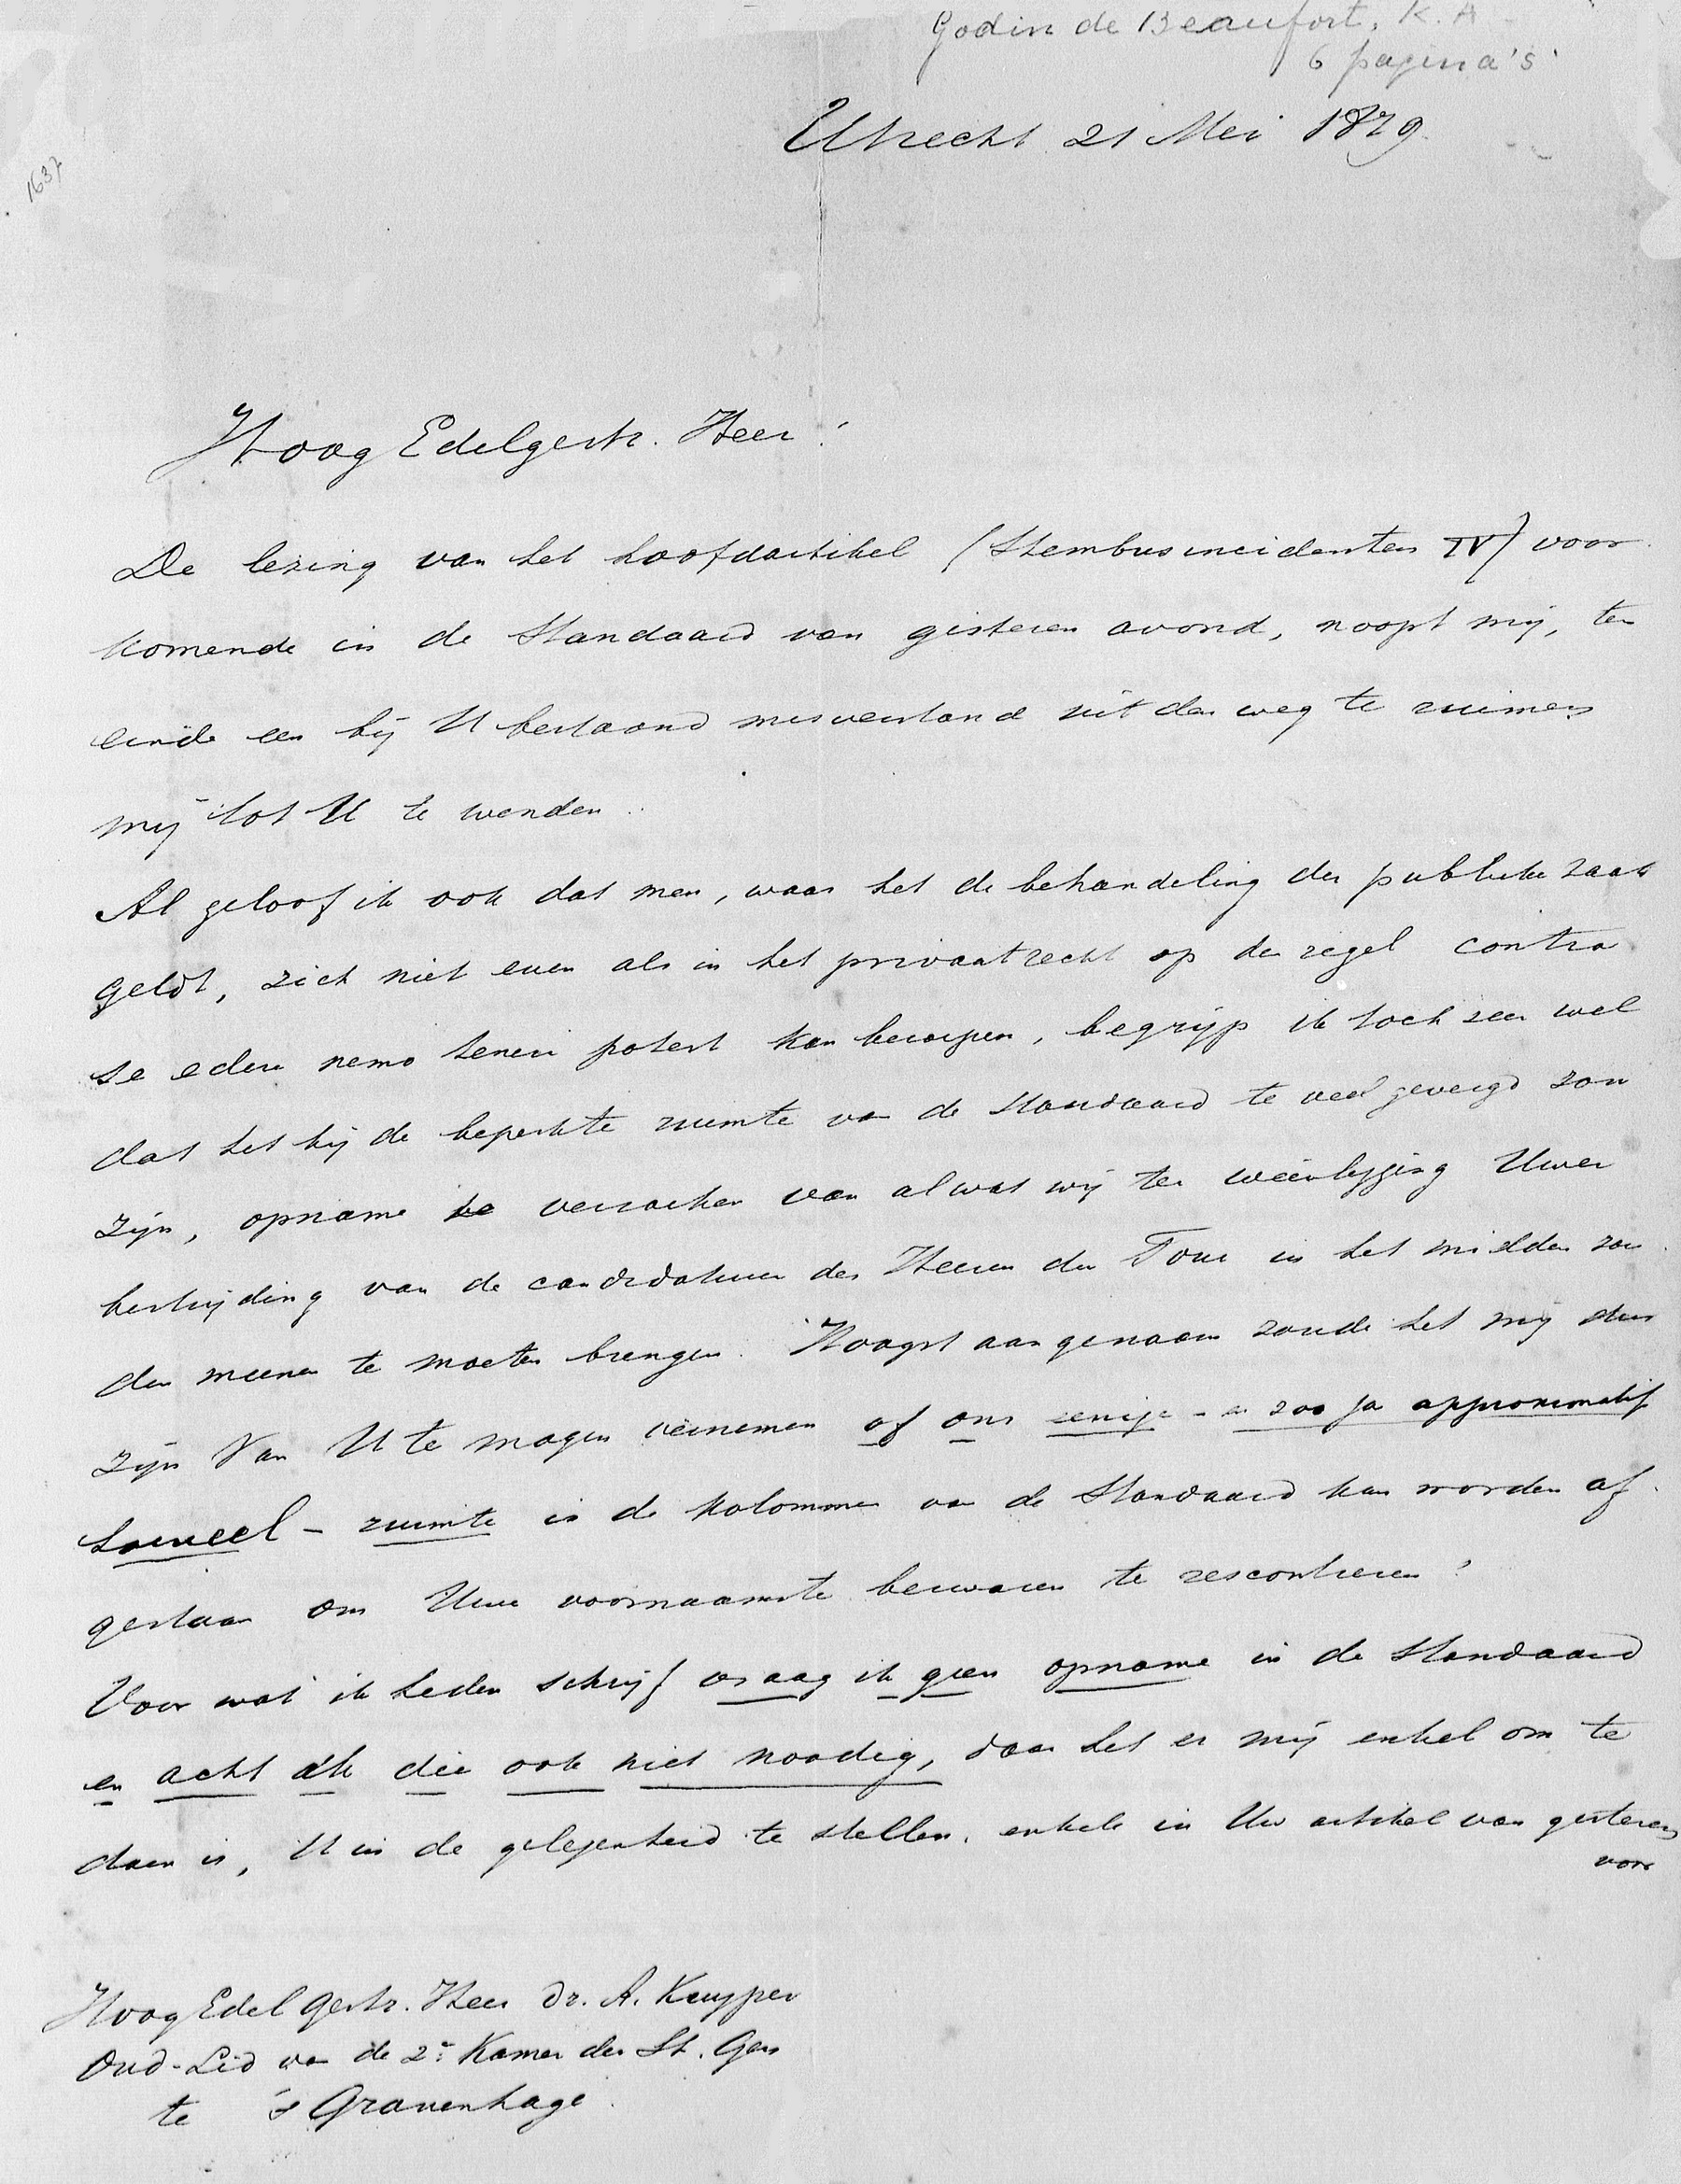 Godin de Beaufort, K. A
6 pagina's
Utrecht 21 Mei 1879.
1637
HoogEdelgestr. Heer!
De lezing van het hoofdartikel (Stembusincidenten IV) voor
komende in de Standaard van gisteren avond, noopt mij, ten
einde een bij U bestaand misverstand uit den weg te ruimen
mij tot U te wenden.
Al geloof ik ook dat men, waar het de behandeling der publieke zaak
geldt, zich niet even als in het privaatrecht op den regel contra
se edere nemo teneri potest kan beroepen, begrijp ik toch zeer wel
dat het bij de beperkte ruimte van de Standaard te veel gevergd zou
zijn, opname te verzoeken van al wat wij ter weerlegging Uwer
bestrijding van de candidatuur des Heeren du Tour in het midden zou
den meenen te moeten brengen. Hoogst aangenaam zoude het mij dus
zijn van U te mogen vernemen of ons eenige - en zoo ja approximatif
hoeveel - ruimte in de kolommen van de Standaard kan worden af
gestaan om Uwe voornaamste bezwaren te rescontreren?
Voor wat ik heden schrijf vraag ik geen opname in de Standaard
en acht ik die ook niet noodig, daar het er mij enkel om te
doen is, U in de gelegenheid te stellen, enkele in Uw artikel van gisteren
voor
HoogEdelGestr. Heer Dr. A. Kuyper
Oud-Lid van de 2e Kamer der St. Gen
te 's Gravenhage.